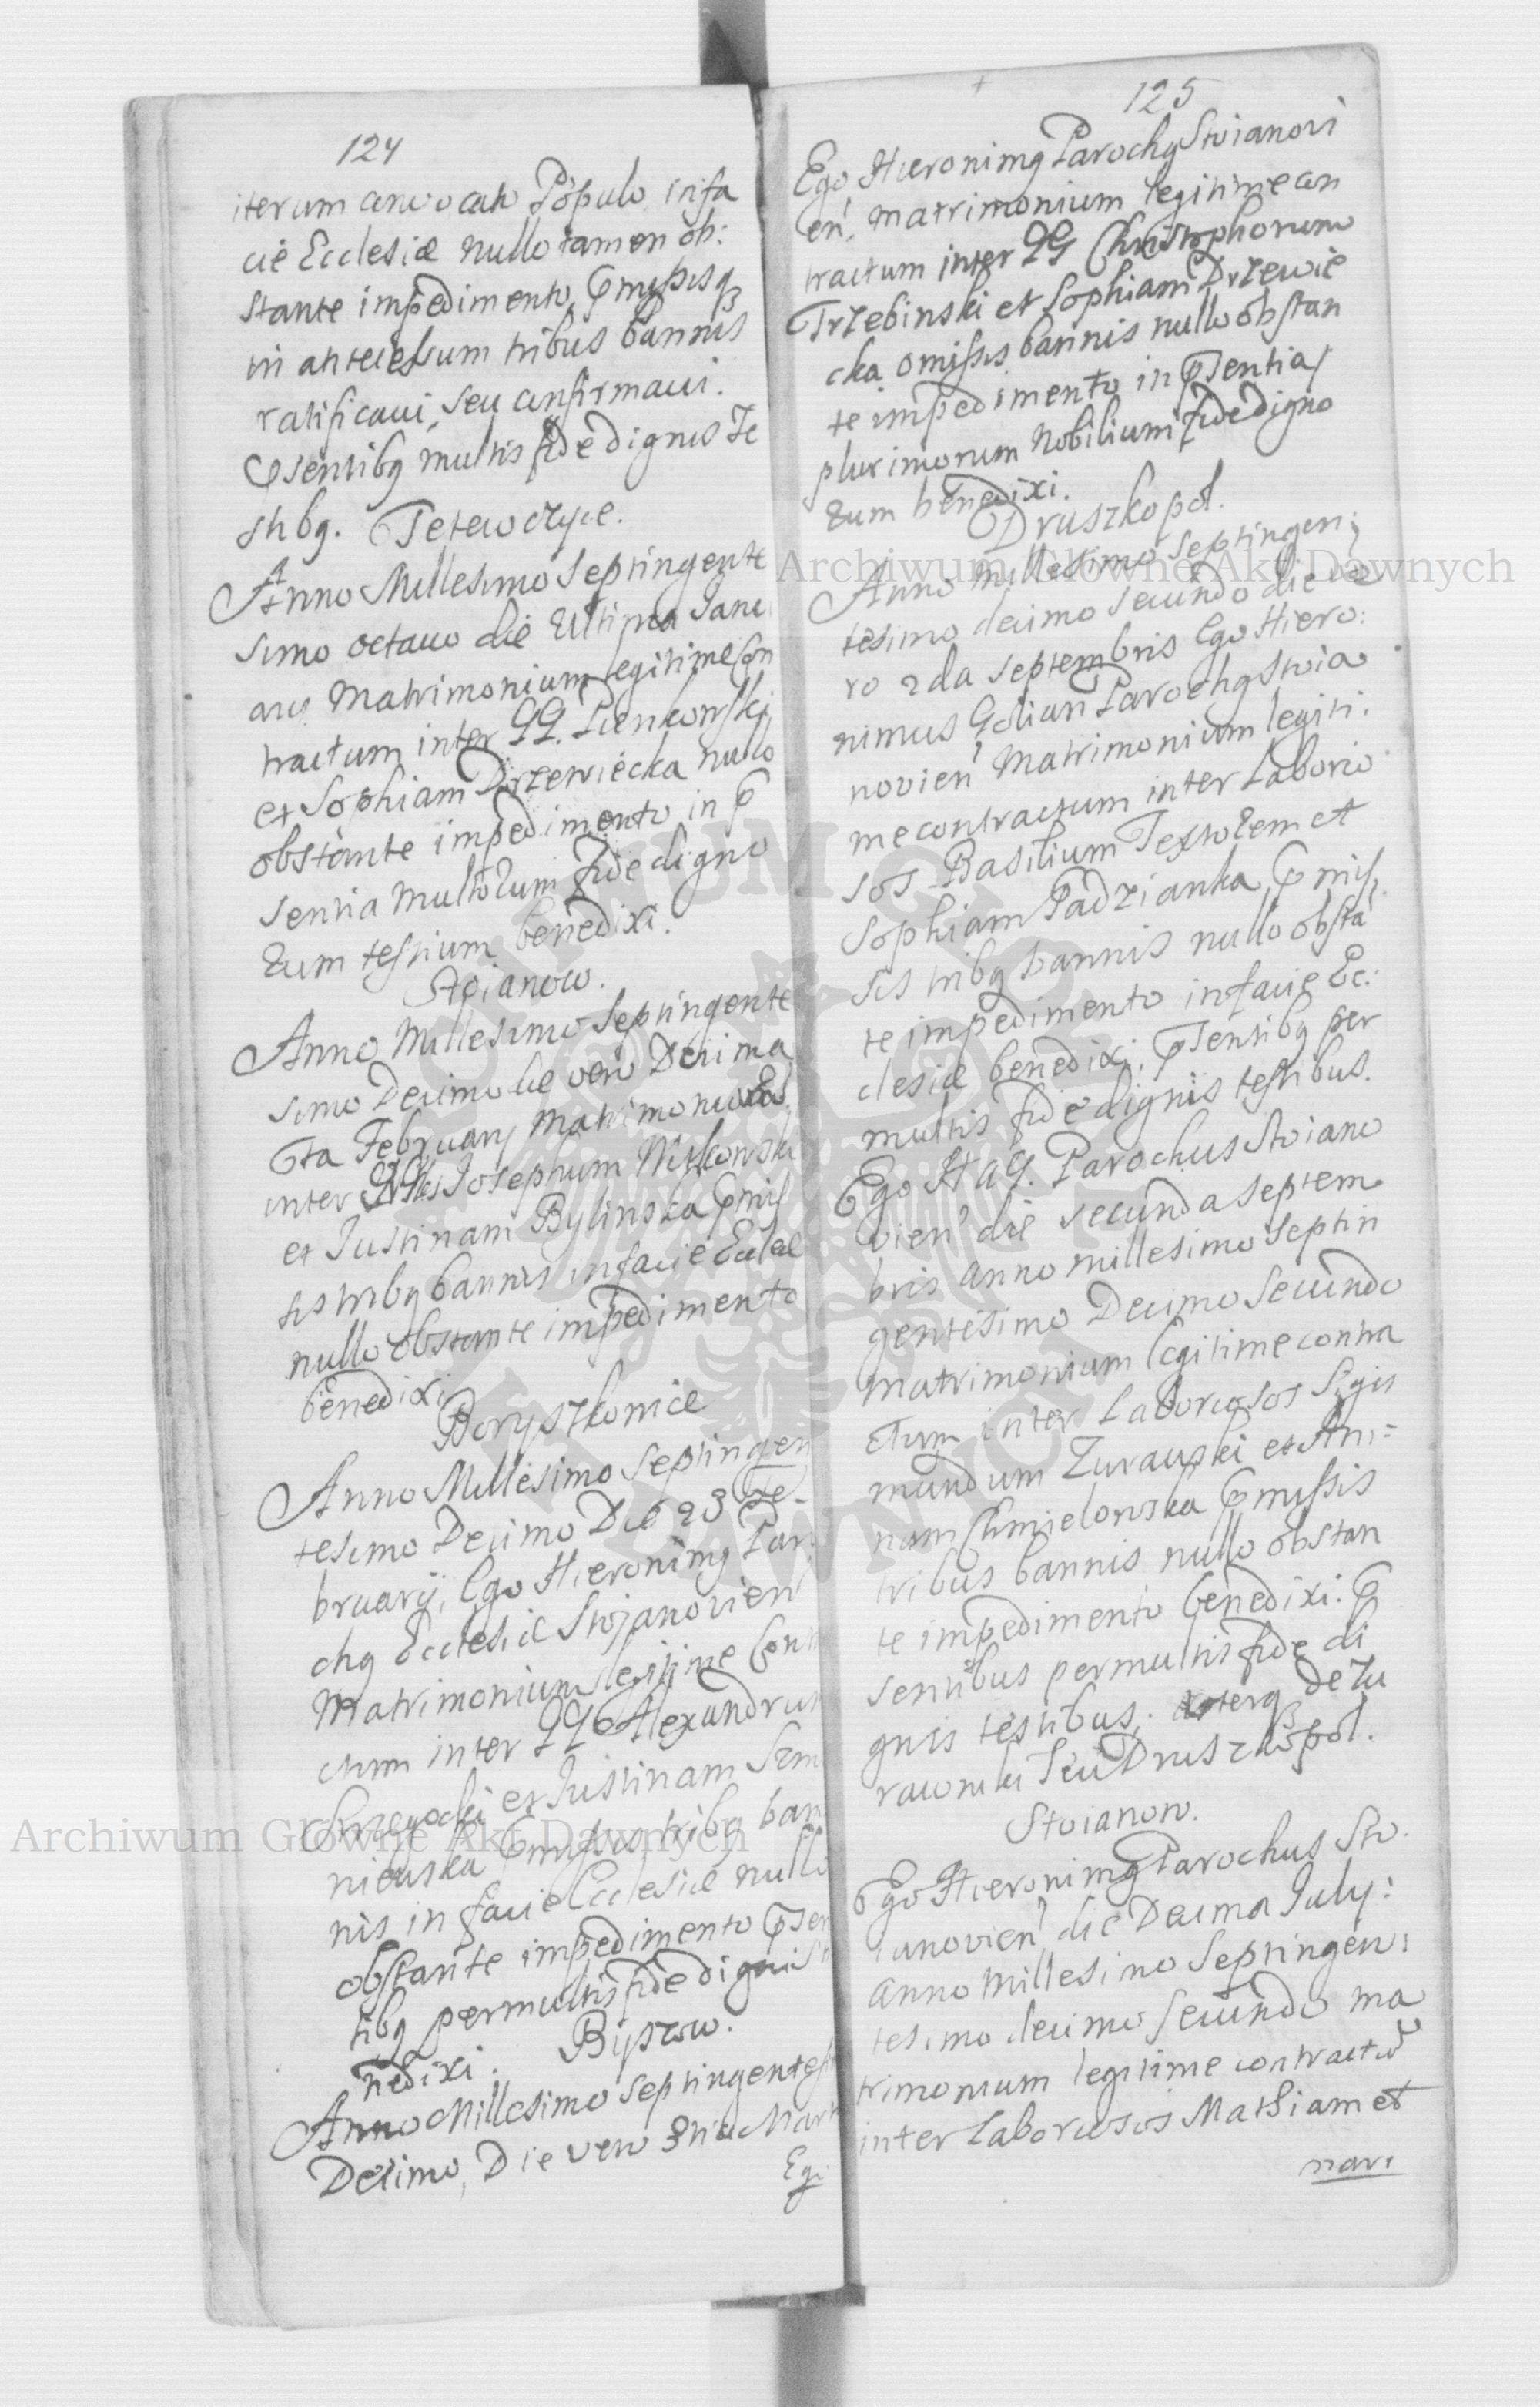 124
iterum convocato Populo infa
cie Ecclesiæ nullo tamen ob:
stante impedimento, pmissisq
in antecessum tribus bannis
ratificavi, seu confirmavi.
psentibq multis fide dignis Te
stibq. Tetewczyce.
Anno Millesimo Septingente
simo octavo die Ultima Janu
arij Matrimonium legitime con
tractum inter GG. Pienkowski
et Sophiam Drzewiecka nullo
obstante impedimento in p
sentia multorum fide digno
rum testium benedixi.
Stoianow.
Anno Millesimo Septingente
simo Decimo die vero Decima
February Matrimonium
inter Josephum Witkowski
et Justinam Bylinska pmis
sis tribq bannis in facie Eccleæ
nullo obstante impedimento
benedixi
Boryszkowice
Anno Millesimo Septingen
tesimo Decimo Die 23 Fe
bruarij, Ego Hieronimq Paro
chq Ecclesiæ Stojanovien
Matrimonium legitime Contra
ctum inter GG Alexandrum
et Justinam
pmissis tribq ban
nis in facie Ecclesiæ nullo
obstante impedimento psen
tibq permultis fide dignis
nedixi. Byszow.
Anno Millesimo Septingentesi
Decimo, Die vero 3tia Marti
Ego
125
Ego Hieronimq Parochq Stoianovi
en. matrimonium legitime con
tractum inter GG Christophorum
Trzebinski et Sophiam Drzewie
cka omissis bannis nullo obstan
te impedimento in psentia
plurimorum Nobilium fide digno
rum benedixi.
Druszkopol.
Anno millesimo Septingen;
tesimo decimo secundo die ve
ro 2da Septembris Ego Hiero:
nimus Golian Parochq Stoia
novien Matrimonium legiti.
me contractum inter Laborio
sos Basilium Textorem et
Sophiam Padzianka pmis
sis tribq bannis nullo obsta
te impedimento in facie Ec:
clesiæ benedixi, psentibq per
multis fide dignis testibus.
Ego H a G. Parochus Stoiano
vien die secunda Septem
bris anno millesimo Septin
gentesimo Decimo Secundo
matrimonium legitime contra
ctum inter Laboriosos Sigis
mundum Zurawski et An:
nam Chmielowska pmissis
tribus bannis nullo obstan
te impedimento benedixi. p
sentibus permultis fide di
gnis testibus. uterq de Zu
rawniki seu Druszkopol.
Stoianow.
Ego Hieronimq Parochus Sto
ianovien die Decima July:
anno Millesimo Septingen:
tesimo decimo Secundo ma
trimonium legitime contractu
inter Laboriosos Mathiam et
mari
Archiwum Główne Akt Dawnych
Archiwum Główne Akt Dawnych